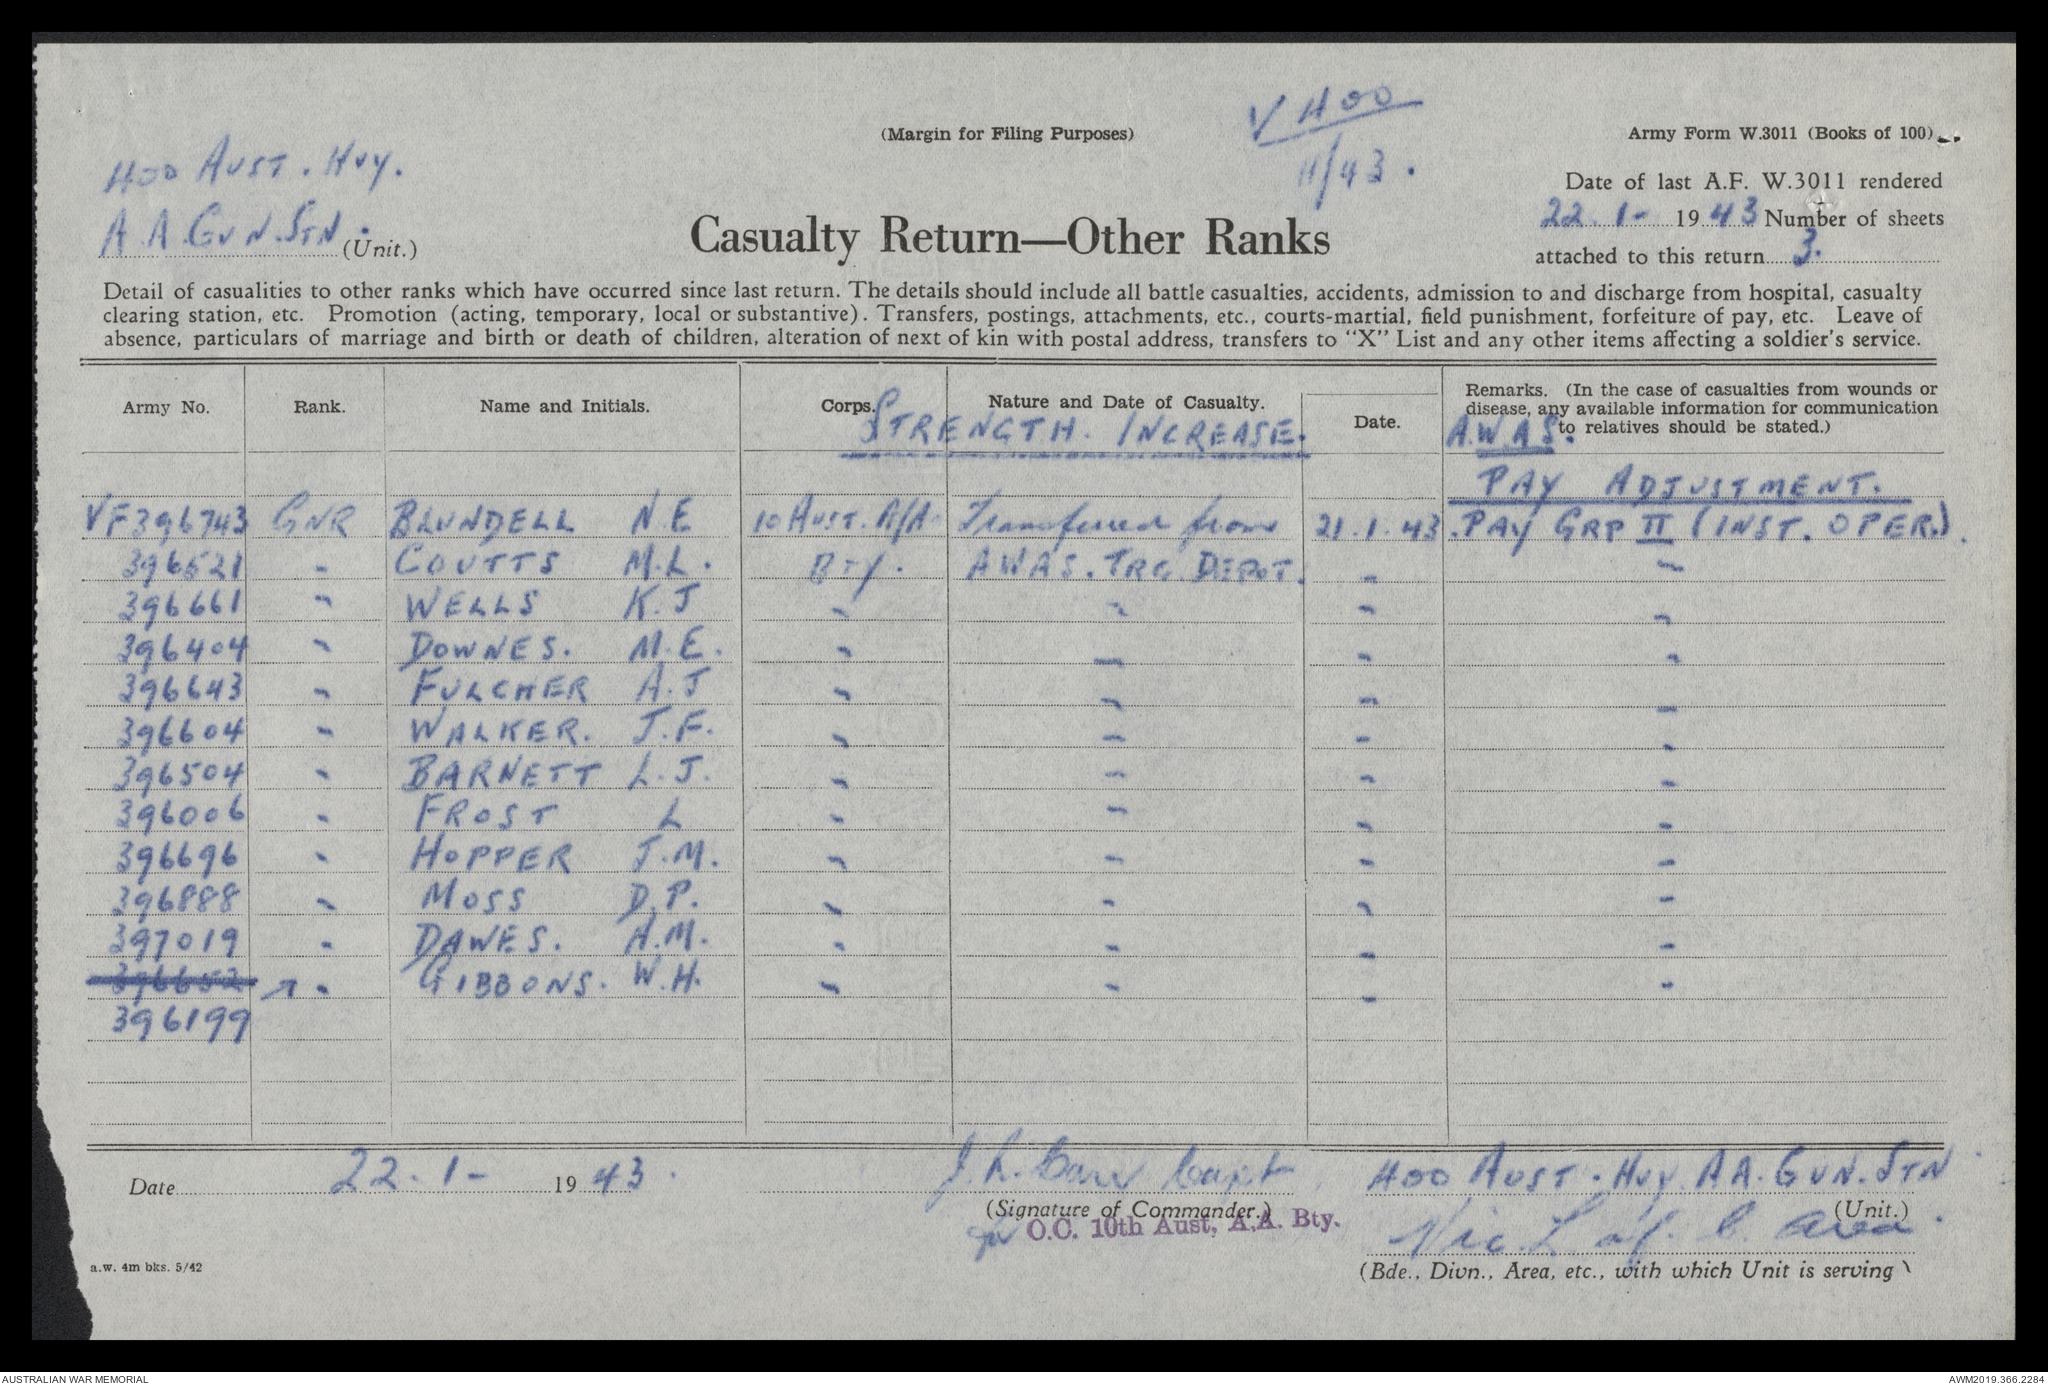 V HOO
11/43.
(Margin for Filing Purposes)
Army Form W.3011 (Books of 100)
HOO AUST. HVY.
A.A. GUN. STN. (Unit.)
Casualty Return—Other Ranks
Date of last A.F. W.3011 rendered
22.1- 1943 Number of sheets
attached to this return 3.
Detail of casualities to other ranks which have occurred since last return. The details should include all battle casualties, accidents, admission to and discharge from hospital, casualty
clearing station, etc. Promotion (acting, temporary, local or substantive). Transfers, postings, attachments, etc., courts-martial, field punishment, forfeiture of pay, etc. Leave of
absence, particulars of marriage and birth or death of children, alteration of next of kin with postal address, transfers to "X" List and any other items affecting a soldier's service.
Army No. Rank. Name and Initials. Corps. Nature and Date of Casualty. Date. Remarks. (In the case of casualties from wounds or
disease, any available information for communication
to relatives should be stated.)
STRENGTH. INCREASE. A.W.A.S.
PAY ADJUSTMENT.
VF396743 GNR BLUNDELL N.E 10 AUST. A/A. Transferred from 21.1.43. PAY GRP II (INST. OPER.).
396521 " COUTTS M.L. BTY. AWAS. TRG. DEPOT. " "
396661 " WELLS K.J " " " "
396404 " DOWNES. M.E. " " " "
396643 " FULCHER A.J " " " "
396604 " WALKER. J.F. " " " "
396504 " BARNETT L.J. " " " "
396006 " FROST L " " " "
396696 " HOPPER J.M. " " " "
396888 " MOSS D.P. " " " "
397019 " DAWES. A.M. " " " "
396652 " GIBBONS. W.H. " " " "
396199
Date 22.1- 1943. J. L. Carr Capt HOO AUST. HVY. A.A. GUN. STN
(Signature of Commander.) (Unit.)
for O.C. 10th Aust, A.A. Bty. Vic. L of C. Area.
a.w. 4m bks. 5/42
(Bde., Divn., Area, etc., with which Unit is serving)
AUSTRALIAN WAR MEMORIAL
AWM2019.366.2284